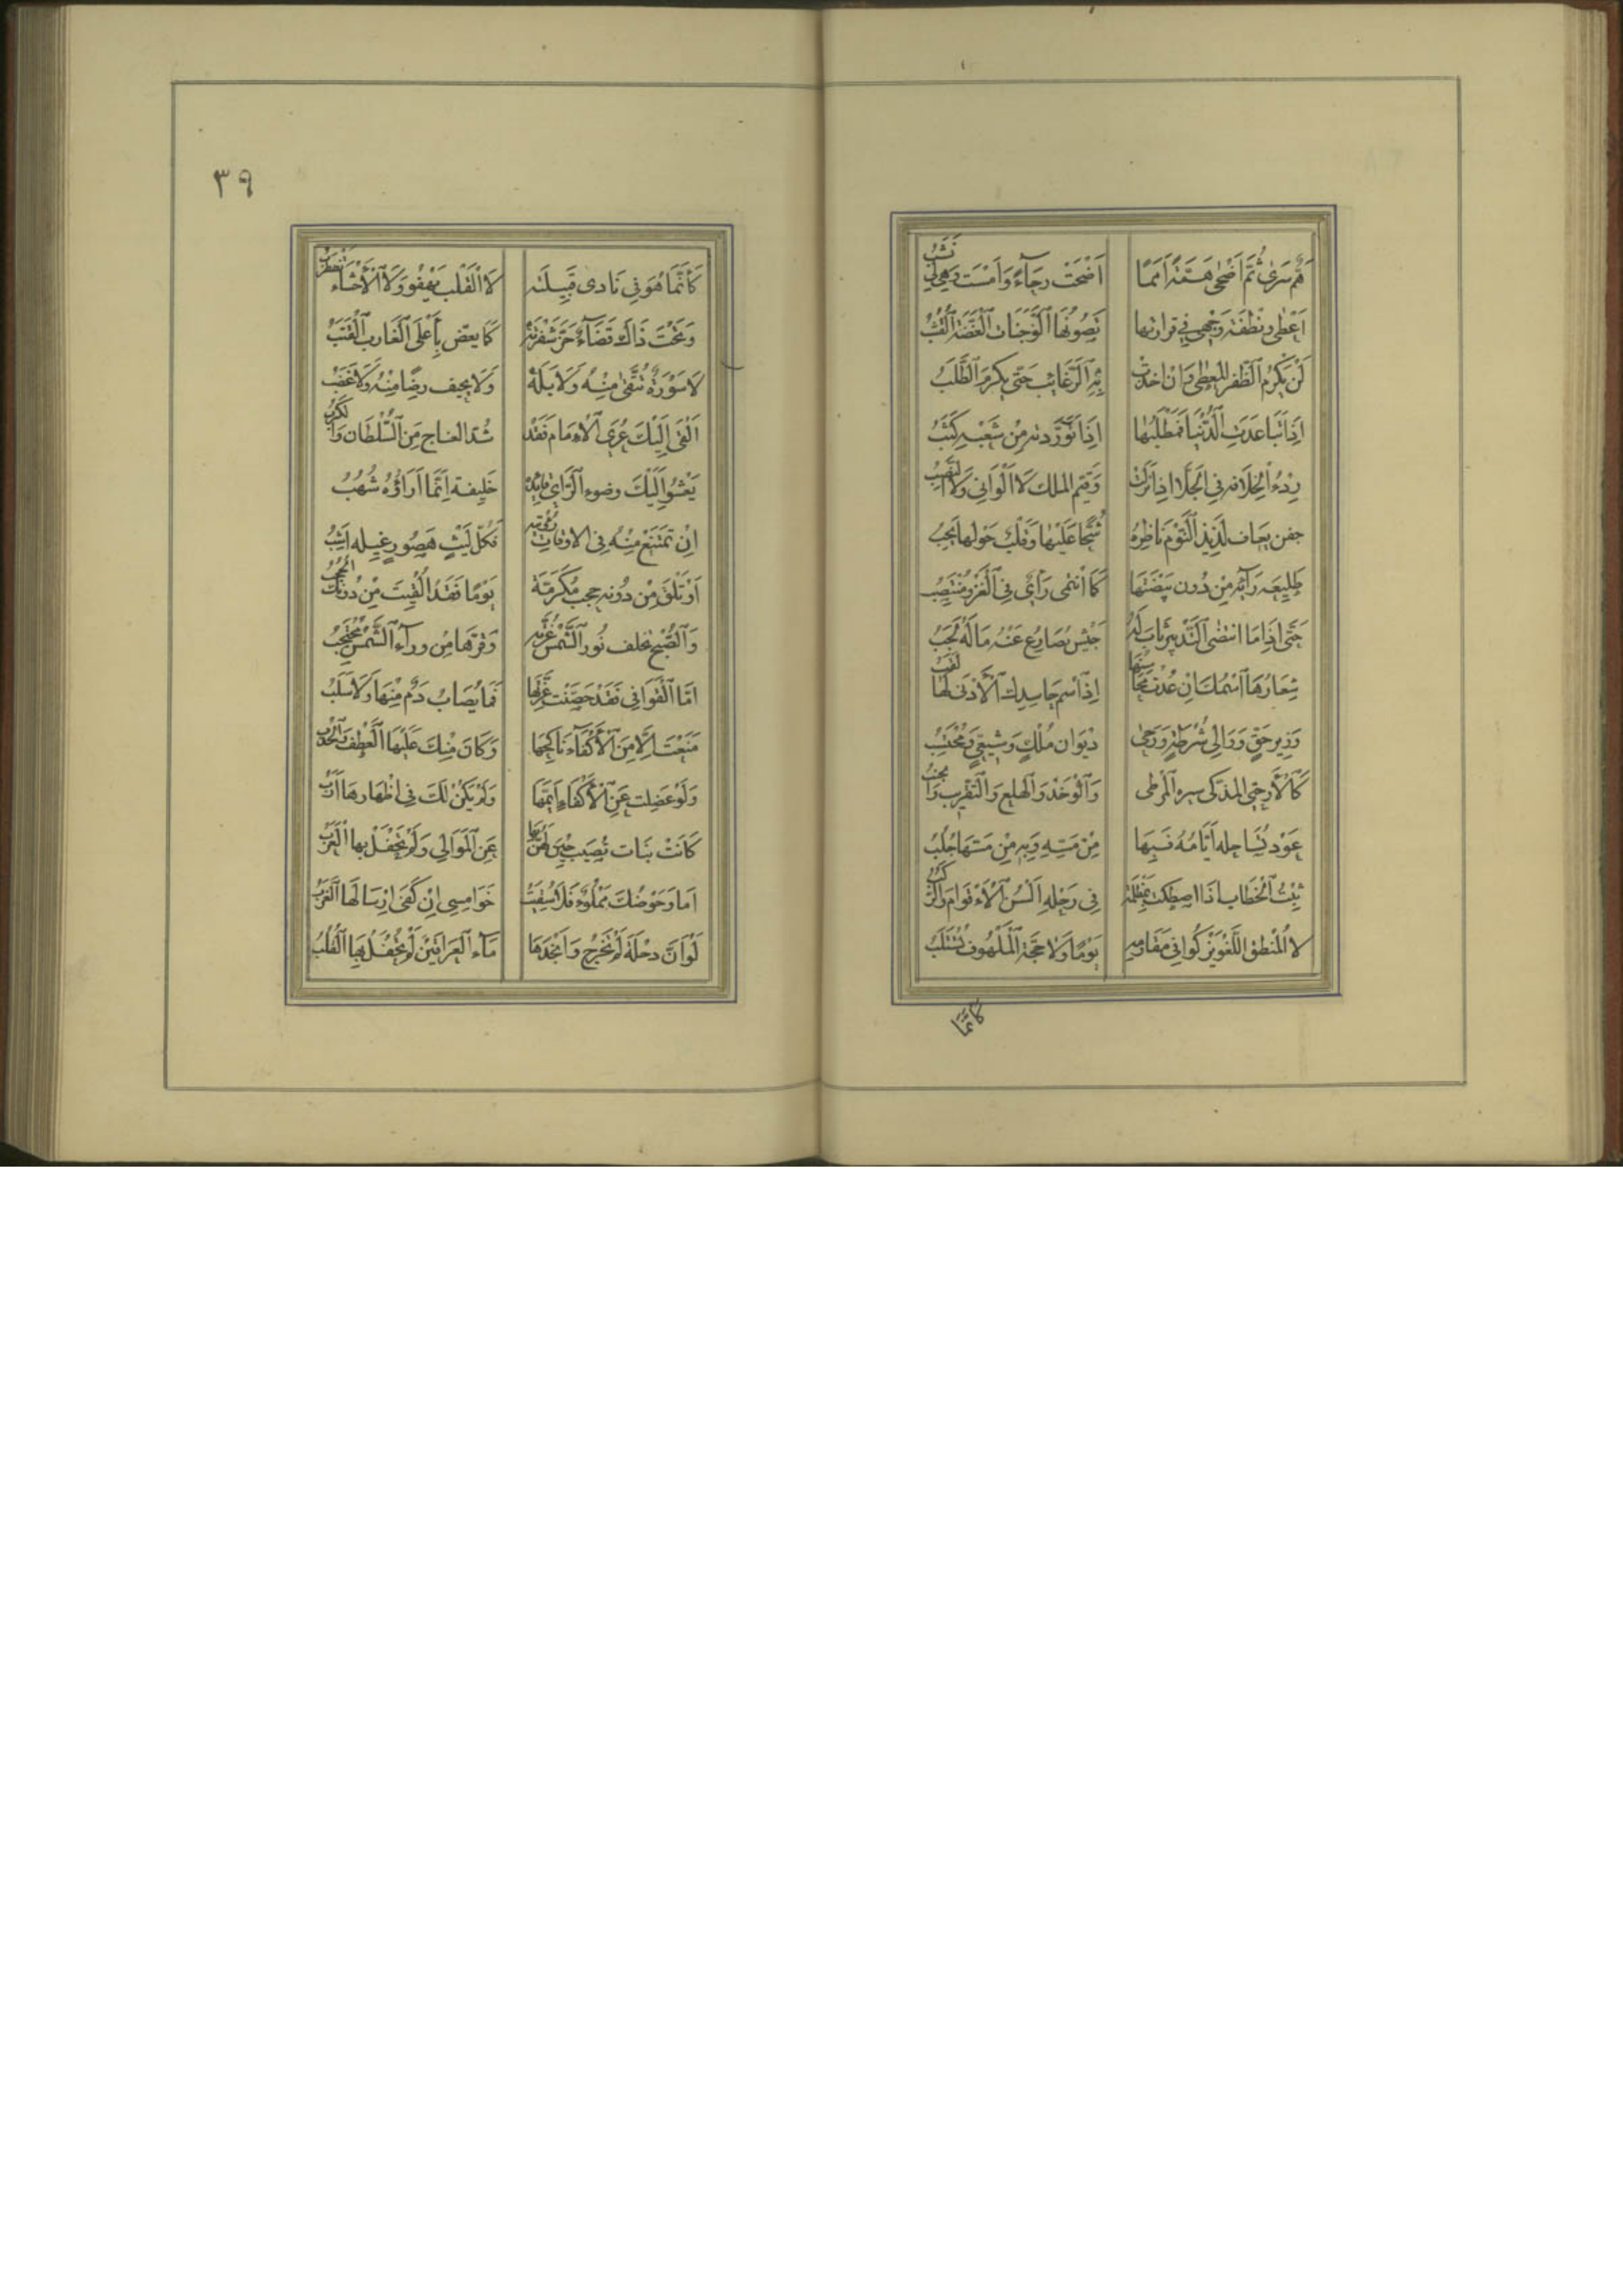 هَمٌّ سَرَى ثُمَّ أَضْحَى هِمَّةً أَمَمًا اَضْحَتْ رَجَآءً وَاَمْسَتْ وَهِيَ لِي نَشَبُ
اَعْطَى وَنُطْفَةُ وَجْهِى فِي قَرَارَتِهَا تَصُونُهَا اَلْوَجَنَاتُ اَلْغَضَّةُ اَلْقُشُبُ
لَنْ يَكْرُمَ اَلظَّفَرُ المُعْطَى وَاِنْ اخذت بِهِ اَلرَّغَائِبُ حَتَّى يَكْرُمَ اَلطَّلَبُ
اِذَا تَبَاعَدَتِ اَلدُّنْيَا فَمَطْلَبُهَا اِذَا تَوَرَّدته مِنْ شَعْبِهِ كَثَبُ
رِدْءُ اَلْخِلَافَه فِي اَلْجُلَّا اِذَا نَزَلَتْ وَقَيِّمُ الملك لَا اَلْوَانِي وَلَا اَلنَّصِبُ
جفن يعاف لَذِيذَ اَلنَّوْمِ نَاظِرُهُ شُحًّا عَلَيْهَا وَقَلْبٌ حَوْلَهَا يَجِبُ
طَلِيعَه رَأْيُهُ مِنْ دُونِ بَيْضَتِهَا كَمَا اَنْتَمَى رَأْيٌ فِي اَلْغَزْوِ مُنْتَصِبُ
حَتَّى اِذَا مَا انْتَضَى اَلتَّدْبِيرُ ثَابَ لَهُ جَيْشٌ يُصَارِعُ عَنْهُ مَا لَهُ لَجَبُ
شِعَارُهَا اَسْمُكَ اِنْ عُدَّتْ مَحَاسِنُهَا اِذَ اَسْم حَاسِدِكَ اَلْأَدْنَى لَهَا لَقَبُ
وَزِير حَقٍّ وَوَالِي شُرْطَةٍ وَرَحَى دِيوَانِ مُلْكٍ وَشِيعِيٍّ وَمُحْتَسِبُ
كَالْأَرْحَبِيِّ المذكى سيره اَلْمَرَطَى وَالْوَخْدُ وَالْمَلع وَالتَّقْرِيبُ وَالْخَبَبُ
عَوْد تُسَاجِله أَيَّامُهُ فَبِهَا مِنْ مَسِّهِ وَبِهِ مِنْ مَسِّهَا جُلَبُ
ثَبْتُ اَلْخِطَابِ اِذَا اصطكت بِمُظْلِمَةٍ فِي رَحْلِهِ اَلْسُنُ اَلْأَقْوَامِ وَالرُّكَبُ
لَا الْمَنْطِقُ اللَّغْوُ يَزْكُو فِي مَقَاوِمِهِ يَوْمًا وَلَا حُجَّةُ اَلْمَلْهُوفِ تُسْتَلَبُ
كَأَنَّمَا
٣٩
كَأَنَّمَا هُوَ فِي نَادِى قَبِيلَتِهِ لَا اَلْقَلْبُ يَهْفُو وَلَا اَلْأَحْشَاءُ تَضْطَرِبُ
وَتَحْتَ ذَاكَ قَضَآءٌ حَزُّ شَفْرَتِهِ كَمَا يَعَضُّ بِأَعْلَى اَلْغَارِبِ اَلْقَتَبُ
لَا سَوْرَةٌ تُتَّقَى مِنْهُ وَلَا بَلَهٌ وَلَا يحيف رِضًا مِنْهُ وَلَا غَضَبُ
اَلْقَى اِلَيْكَ عُرَى اَلْأَمَام فَقَدْ شُدَّ العناج مِنَ اَلسُّلْطَانِ وَالْكَرَبُ
يَعْشُو اِلَيْكَ وضوء اَلرَّاي قَائِدُهُ خَلِيفة اِنَّمَا اَرَاؤُهُ شُهُبُ
اِنْ تَمْتَنِعْ مِنْهُ فِي الاوقات رُؤْيَتُهُ فَكُلُّ لَيْثٍ هَصُورٍ غِيلُه اَشِبُ
اَوْ تَلْقَ مِنْ دُونِهِ حجب مُكَرَّمَة يَوْمًا فَقَدْ اُلْقِيَتْ مِنْ دُونِكَ اَلْحُجُبُ
وَالصُّبْحُ تخلف نُورَ اَلشَّمْسِ غُرَّتُهُ وَقَرْنُهَا مِنْ وَرَآءِ اَلشَّمْسِ مُحْتَجِبُ
اَمَّا اَلْقَوَافِي فَقَدْ حَصَّنْتَ غُرَّتَهَا فَمَا يُصَابُ دَمٌ مِنْهَا وَلَا سَلَبُ
مَنَعْتَ اِلَّا مِنَ اَلْأَكْفَاءِ نَاكِحَهَا وَكَانَ مِنْكَ عَلَيْهَا اَلْعَطْفُ وَالْحَدَبُ
وَلَوْ عَضَلْتَ عَنِ اَلْأَكْفَاءِ اَيِّمَهَا وَلَمْ يَكُنْ لَكَ فِي اِظْهَارِهَا اَرَبُ
كَانَتْ بَنَات نُصَيْبٍ حِينَ ضَنَّ بِهَا عَنِ اَلْمَوَالِي وَلَمْ تَحْفَلْ بِهَا اَلْعَرَبُ
اَمَا وَحَوْضُكَ مَمْلُوءٌ فَلَا سُقِيَتْ خَوَامِسِي اِنْ كَفَى اِرْسَالَهَا اَلْغَرَبُ
لَوْ اَنَّ دجلَةَ لَمْ تُحْوِجْ وَاَنْجَدَهَا مَآءُ اَلْعِرَاقَيْنِ لَمْ تُحْفَرْ بِهَا اَلْقُلُبُ